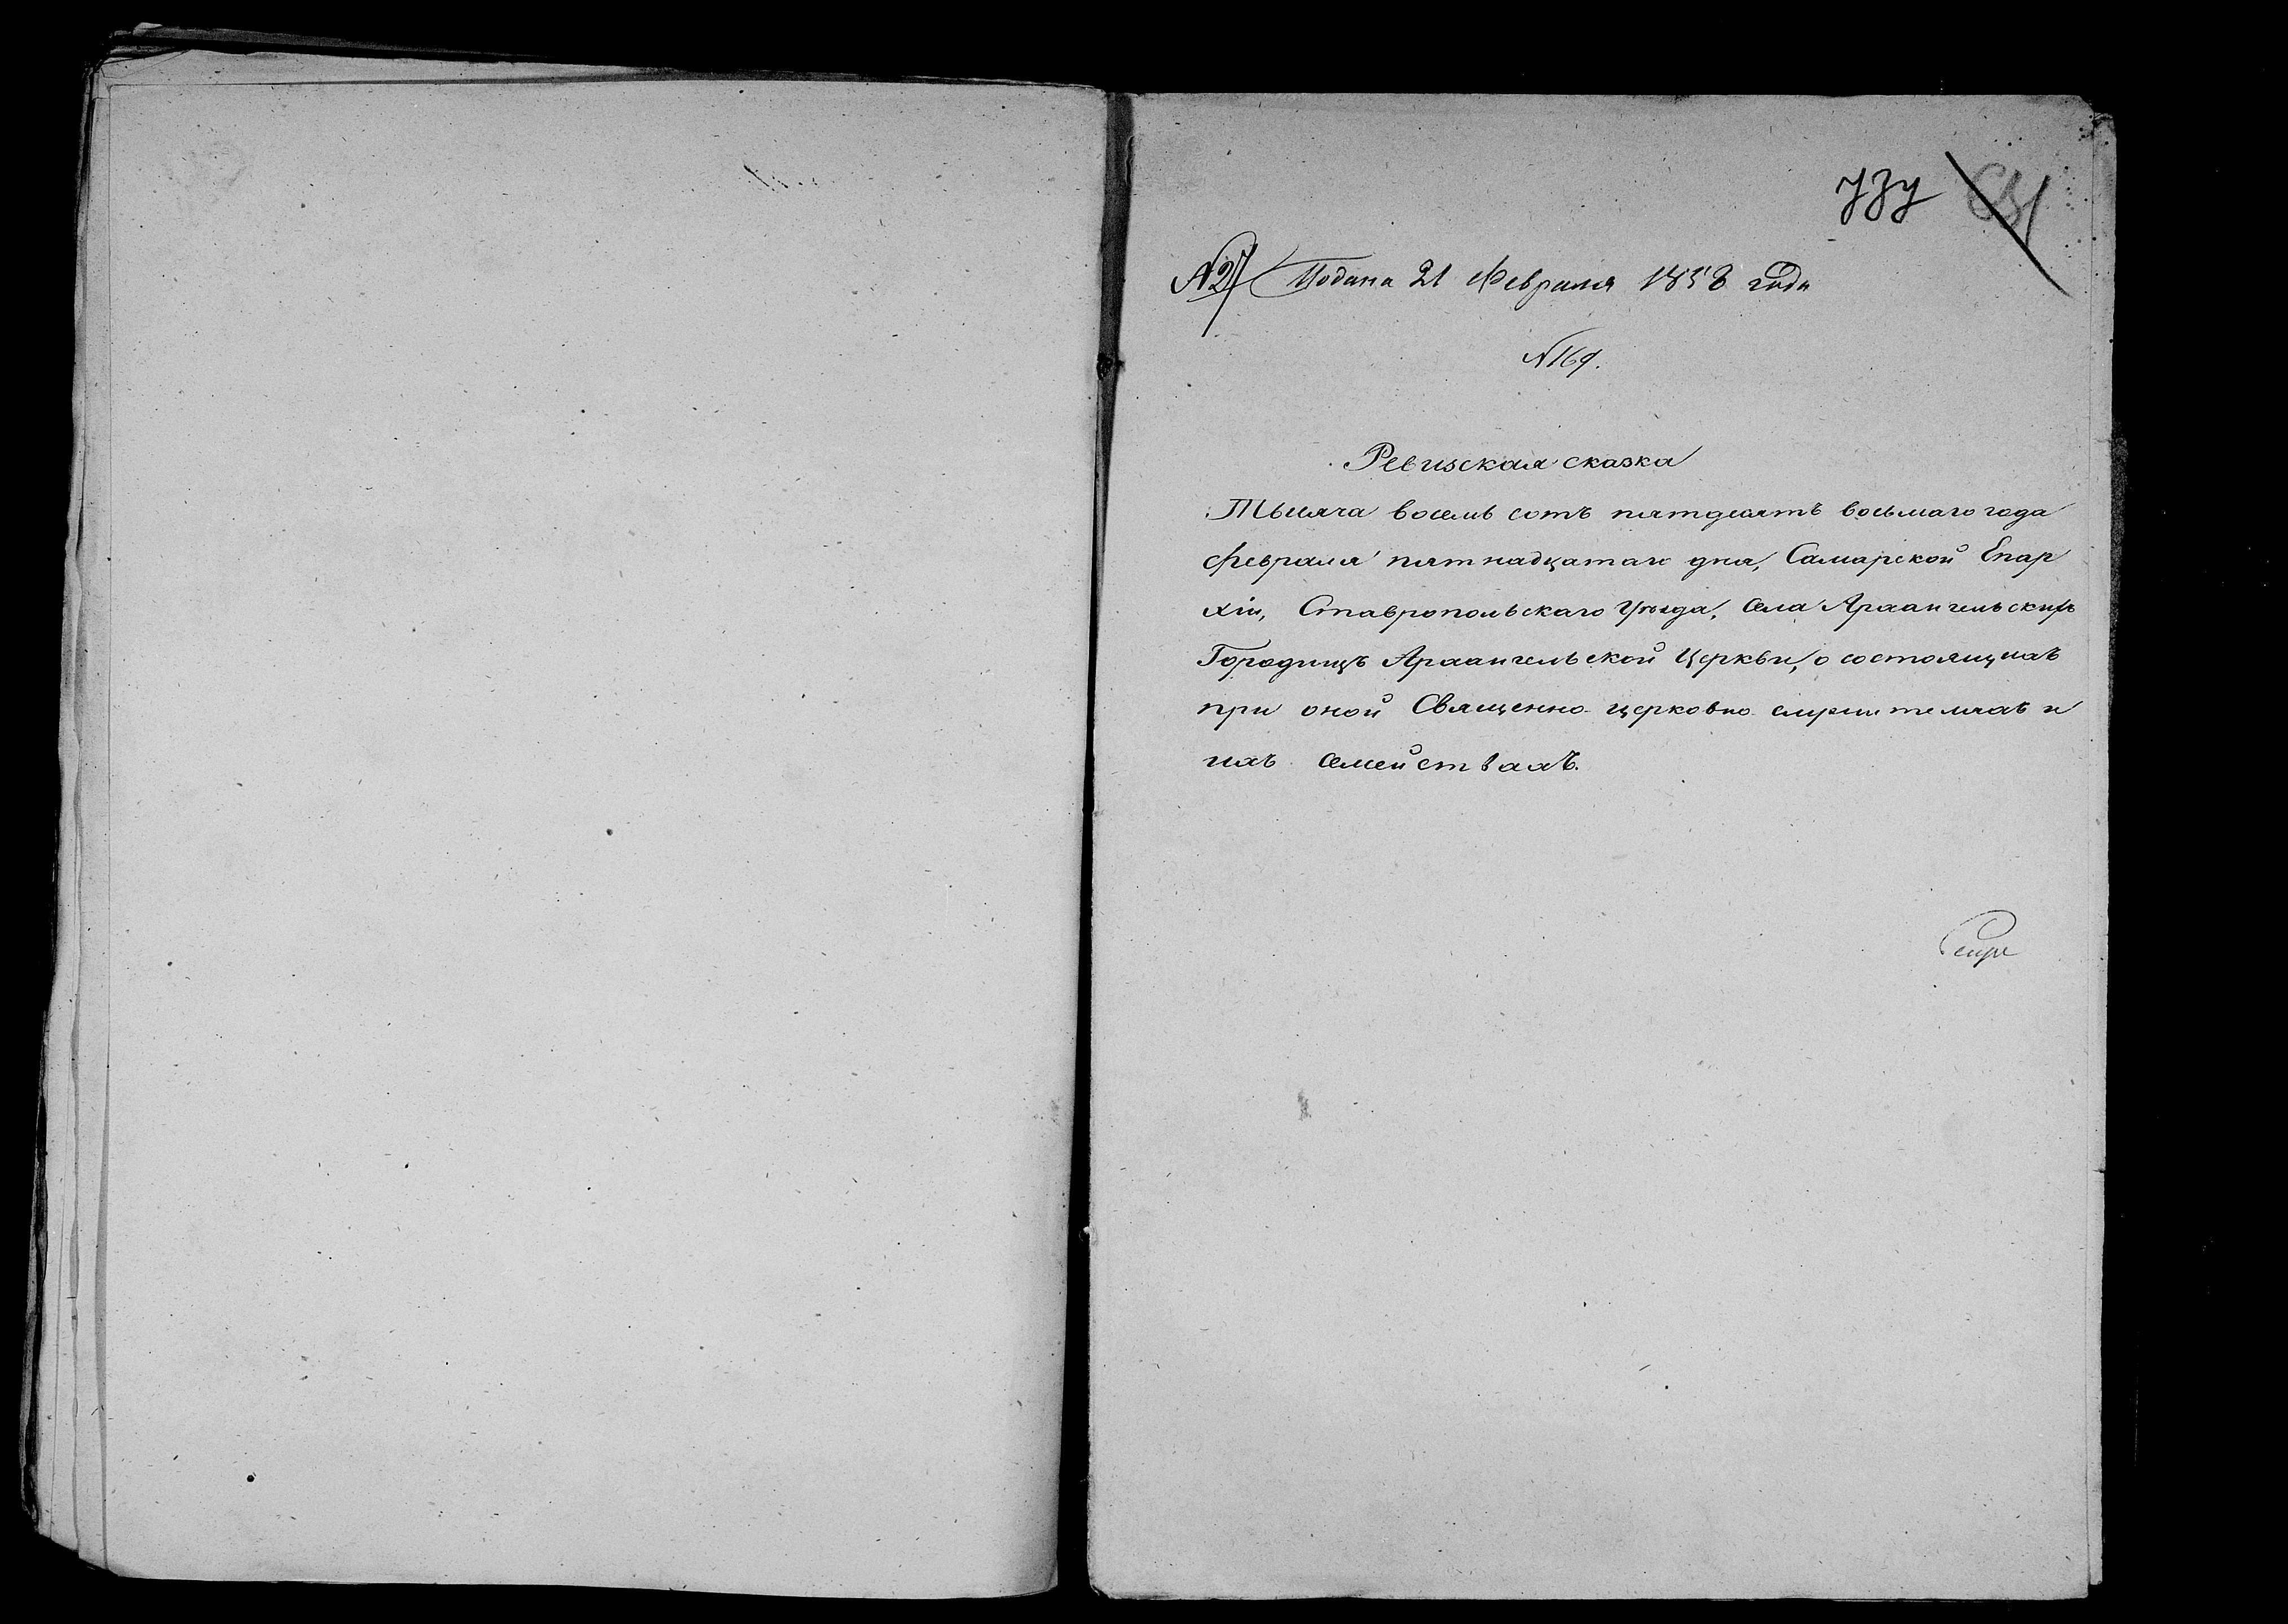 737
№ 27 Подана 21 Февраля 1858 года
№ 169.
Ревизская сказка
Тысяча восемь сотъ пятдесятъ восьмаго года
Февраля пятнадцатаго дня, Самарской Епар
хіи, Ставропольскаго Уѣзда, села Архангельскихъ
Городищъ Архангельской Церкви, о состоящихъ
при оной Священно церковно служителяхъ и
ихъ семействахъ.